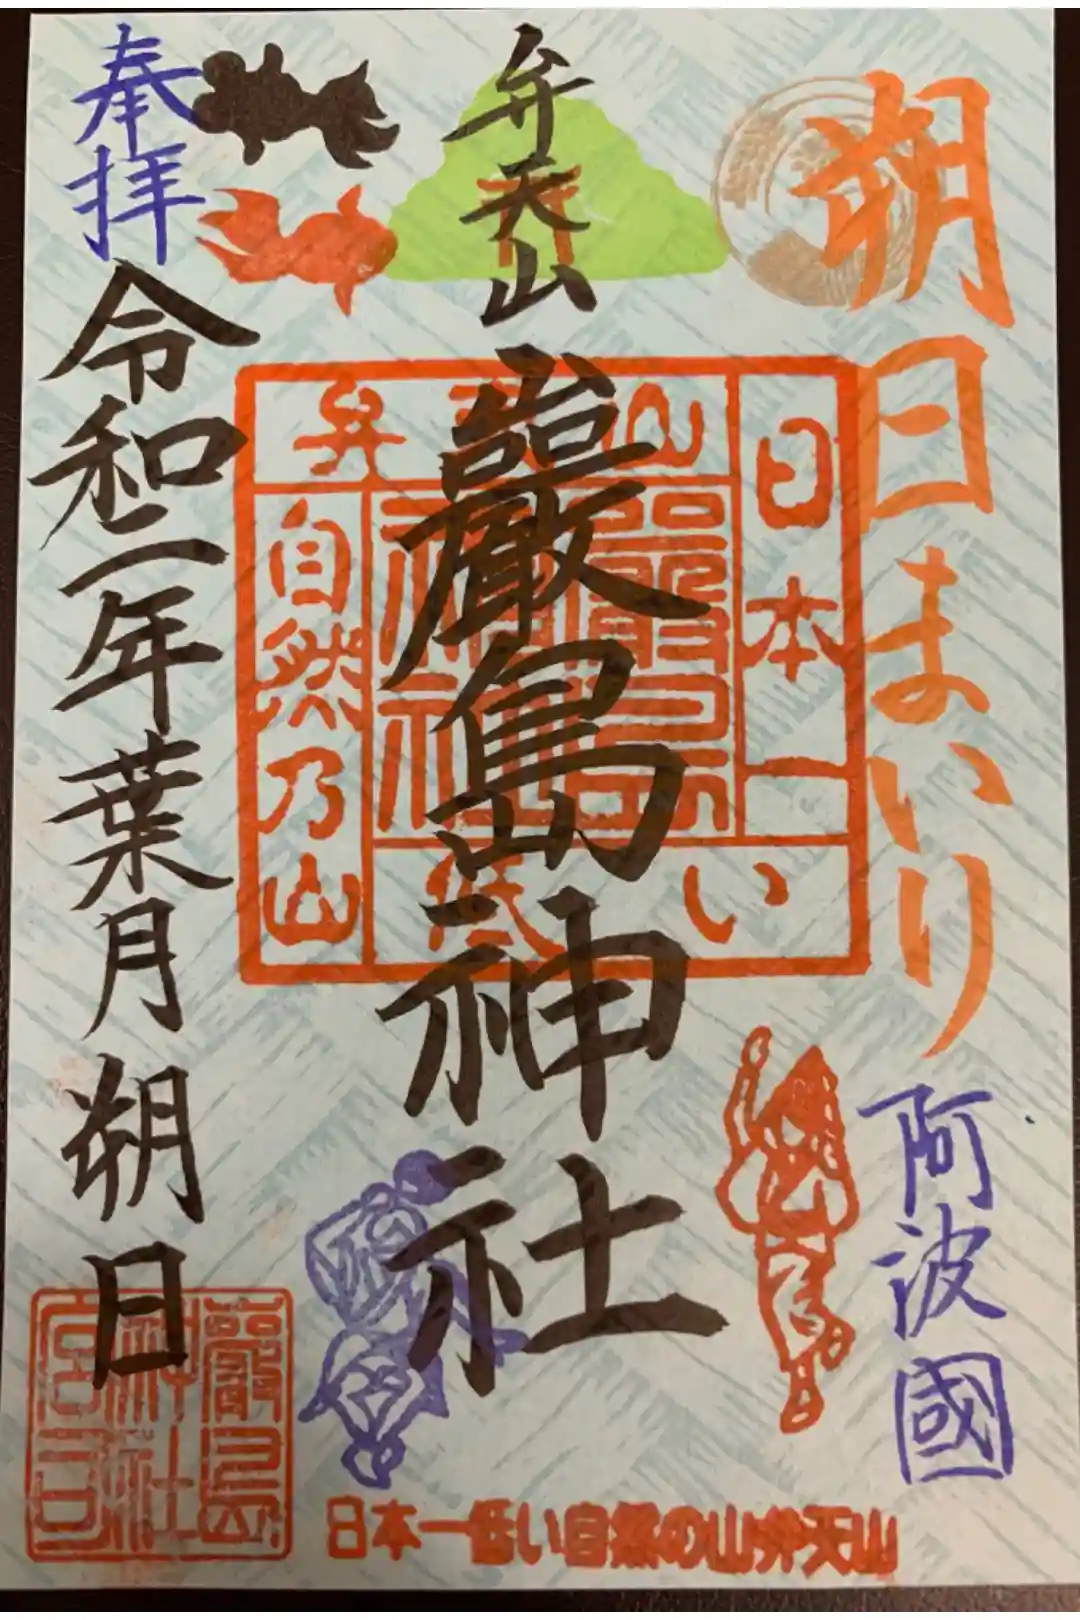 朔日まいり
阿波國
弁天山
嚴島神社
奉拝
令和二年葉月朔日
日本一
い低
山天弁
自然乃山
嚴島神社
嚴島
神社
宮司
日本一低い自然の山弁天山